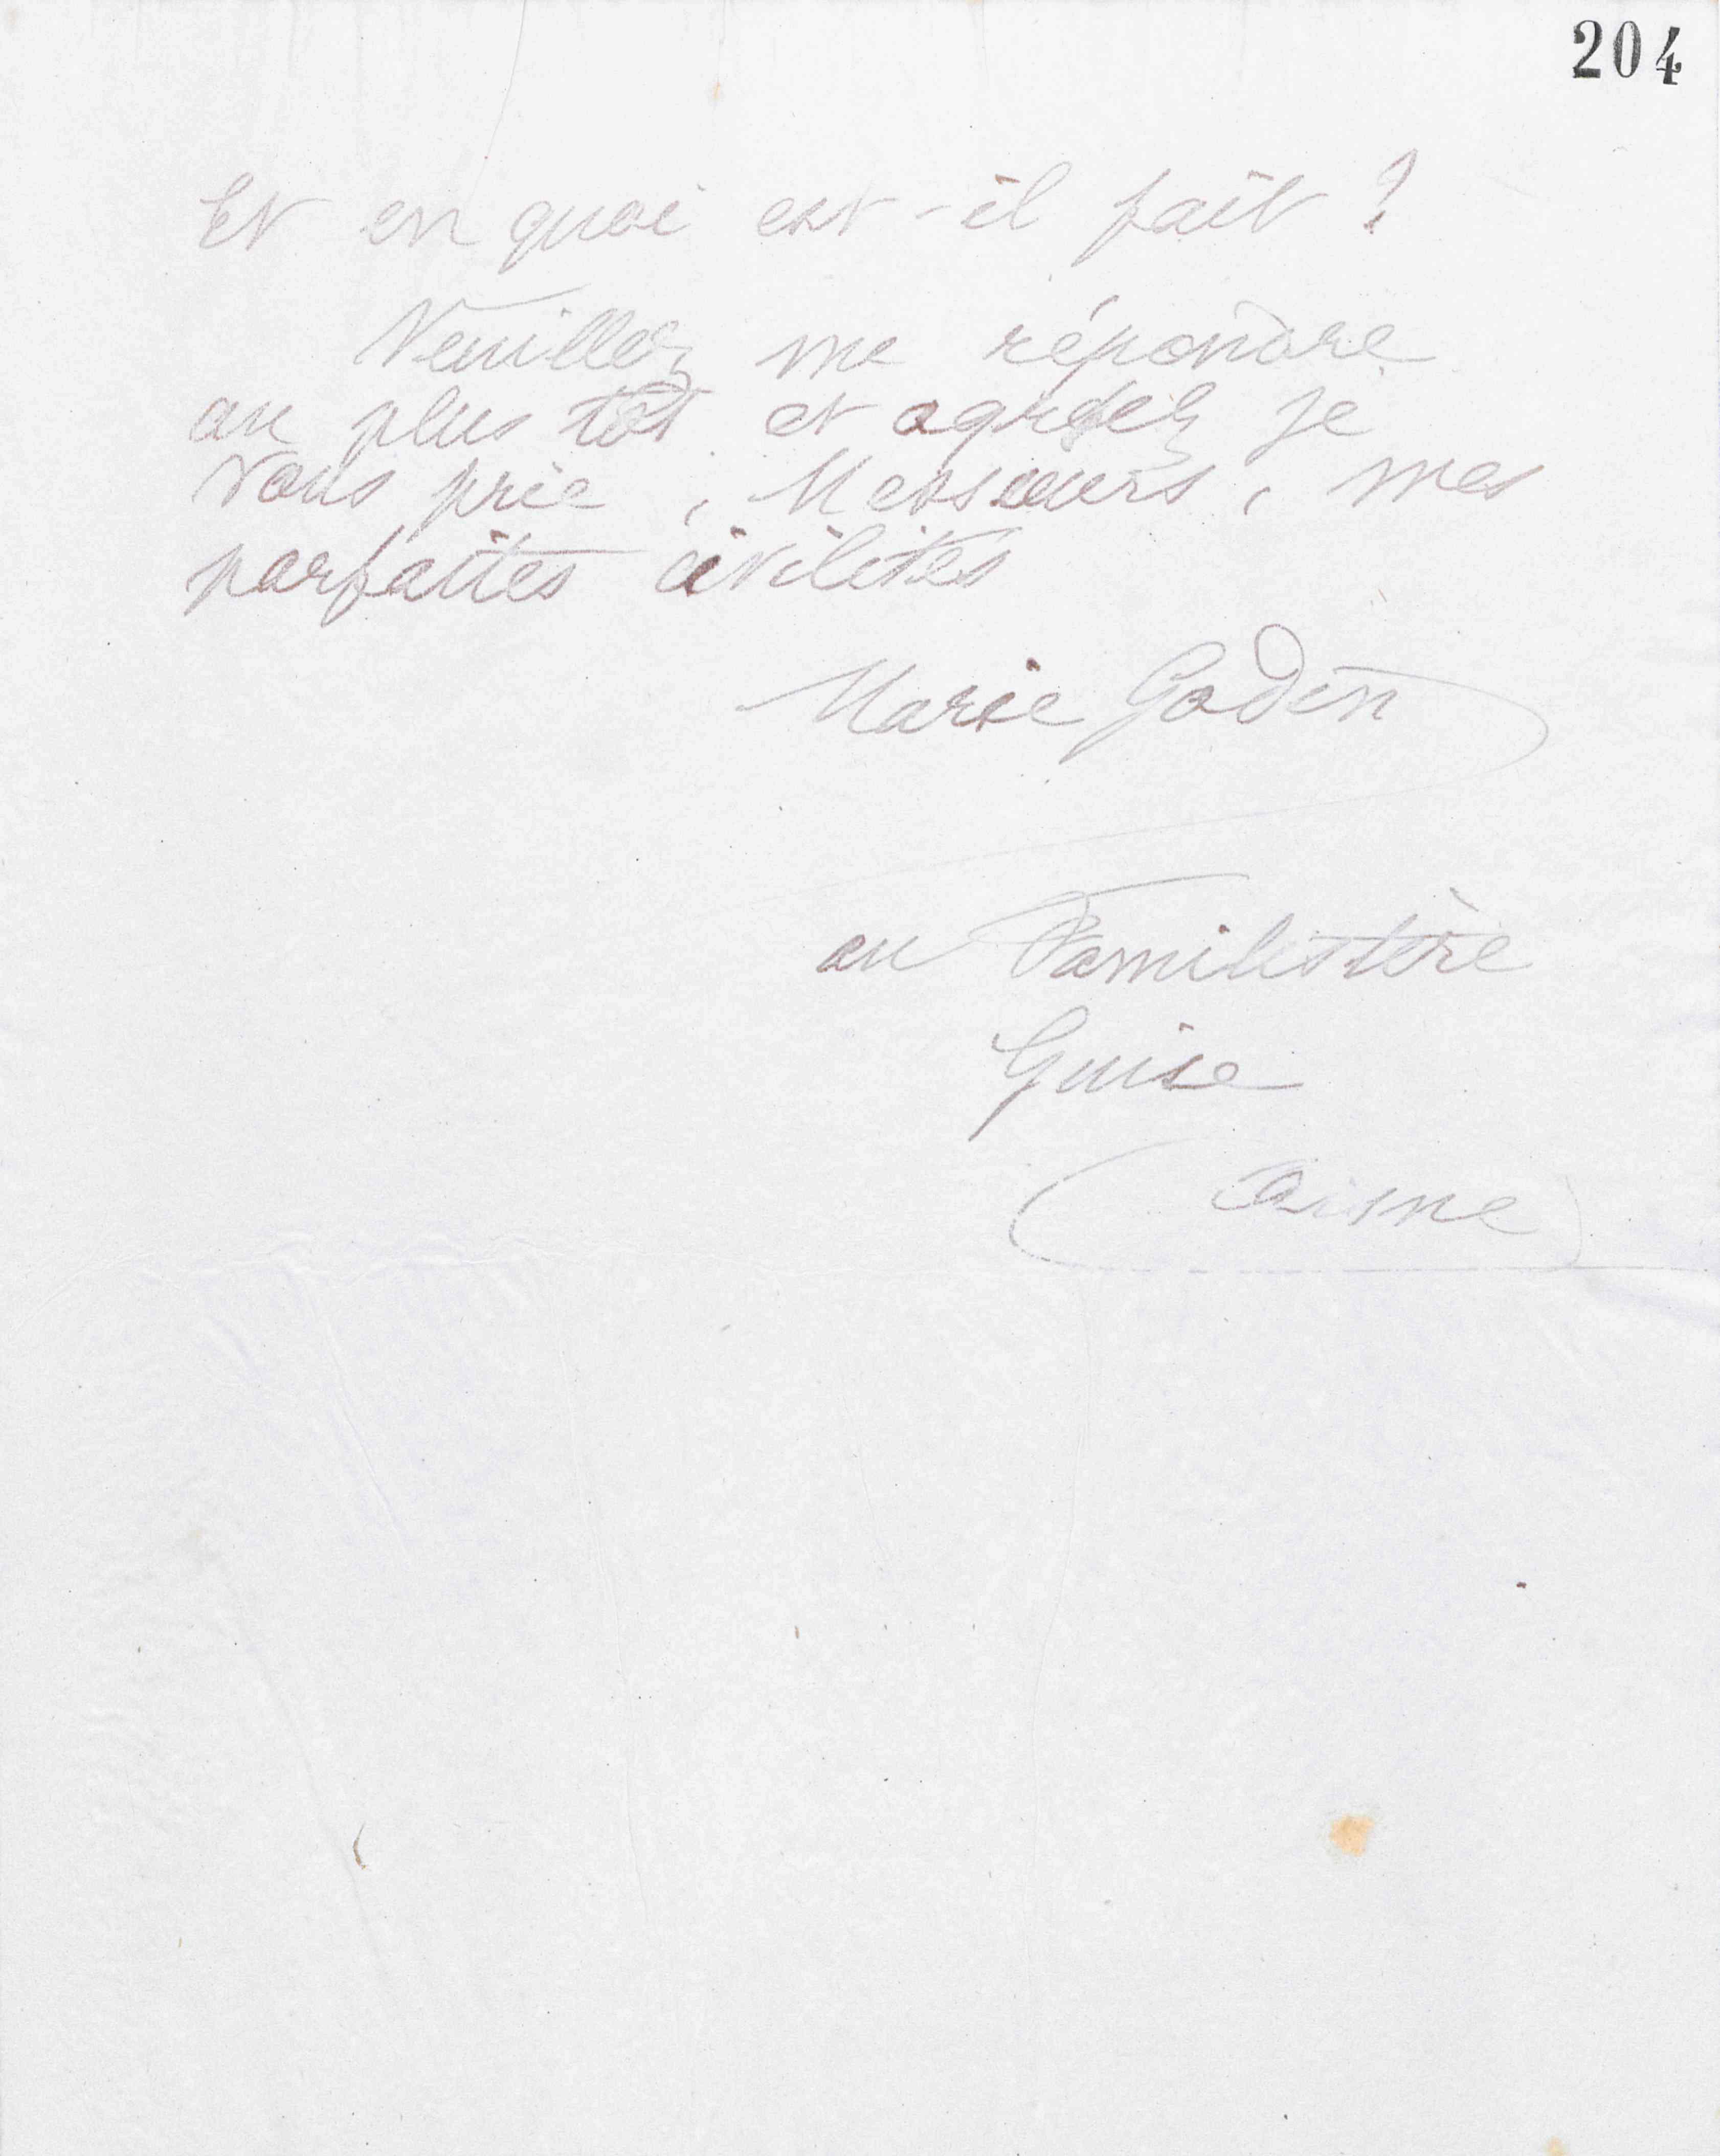 204
Et en quoi est-il fait ?
Veuillez me répondre
au plus tôt et agréez je
vous prie, Messieurs, mes
parfaites civilités
Marie Godin
au Familistère
Guise
(Aisne)